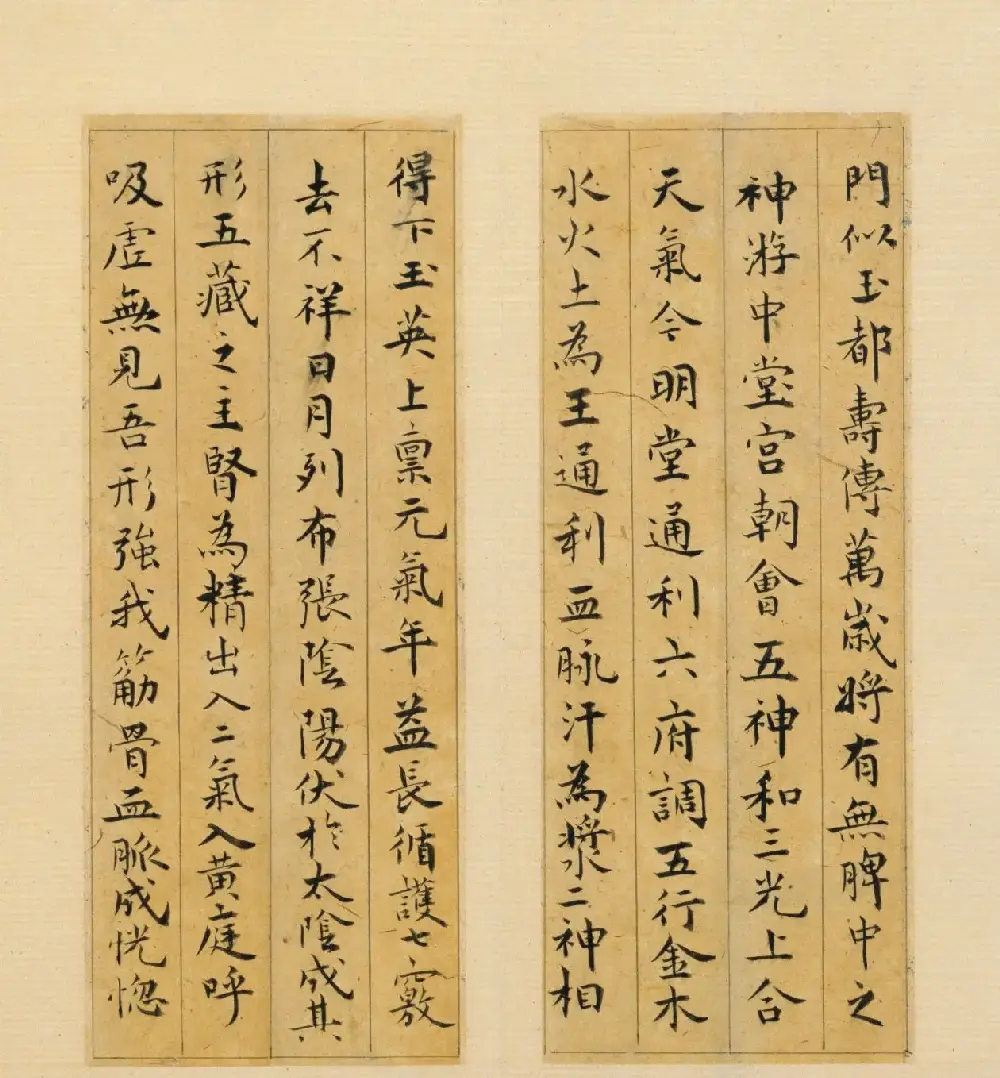 門似玉都壽傳萬歲將有無脾中之
神游中堂宮朝會五神和三光上合
天氣令明堂通利六府調五行金木
水火土為王通利血脉汗為漿二神相
得下玉英上禀元氣年益長循護七竅
去不祥日月列布張陰陽伏於太陰成其
形五藏之主腎為精出入二氣入黃庭呼
吸虛無見吾形強我筋骨血脈成恍惚